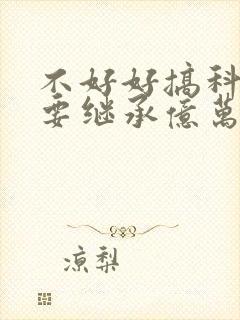 不好好搞科
要继承億萬
凉梨